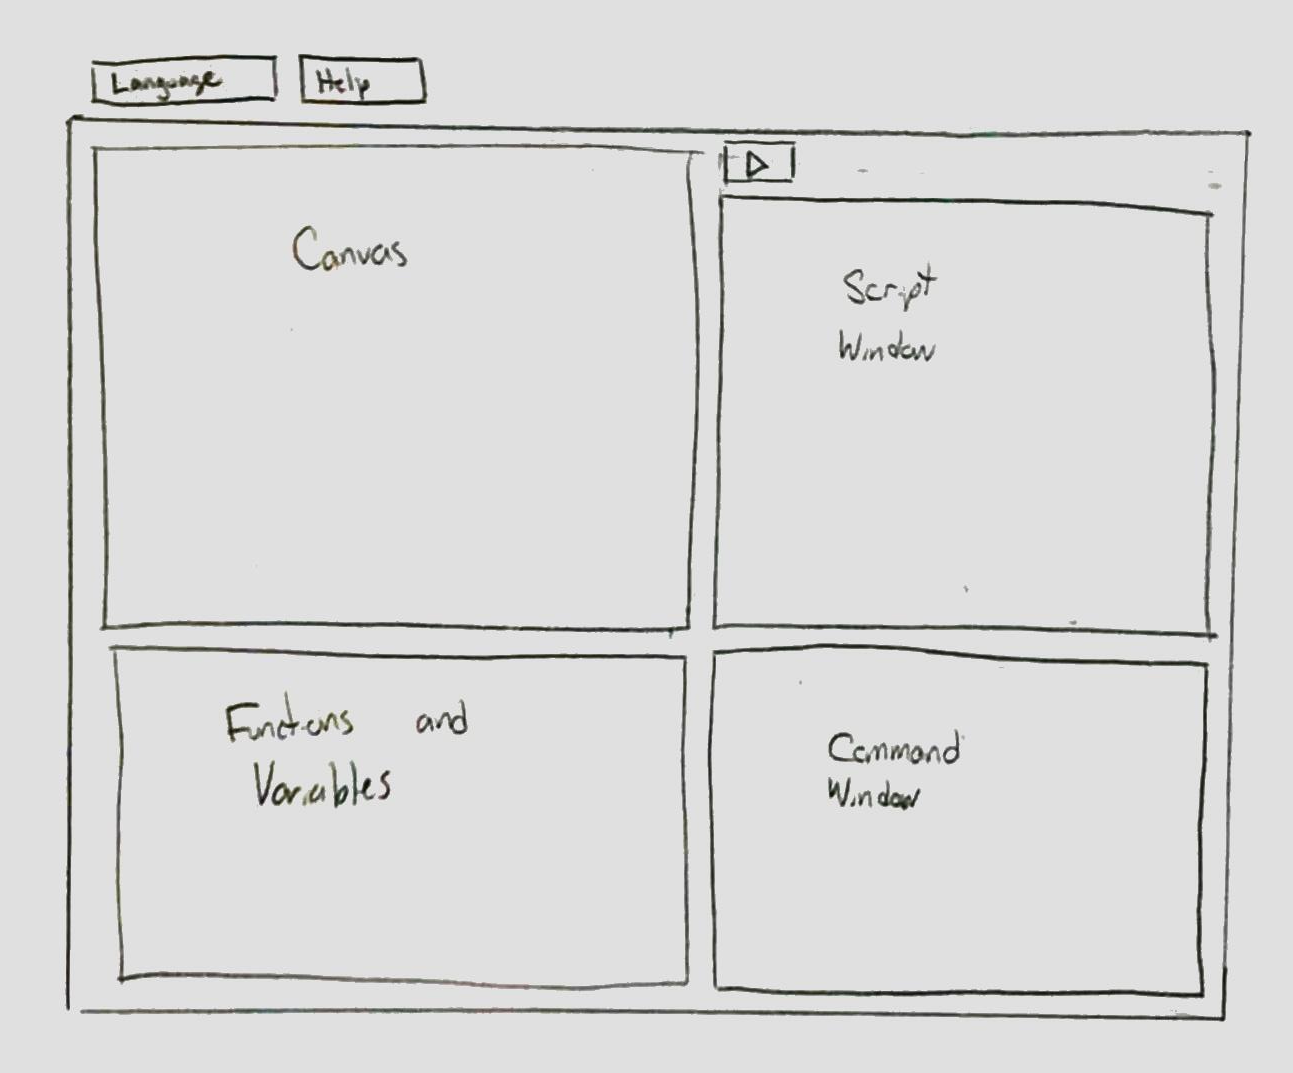 Language
Help
Canvas
Script
Window
Functions and
Variables
Command
Window